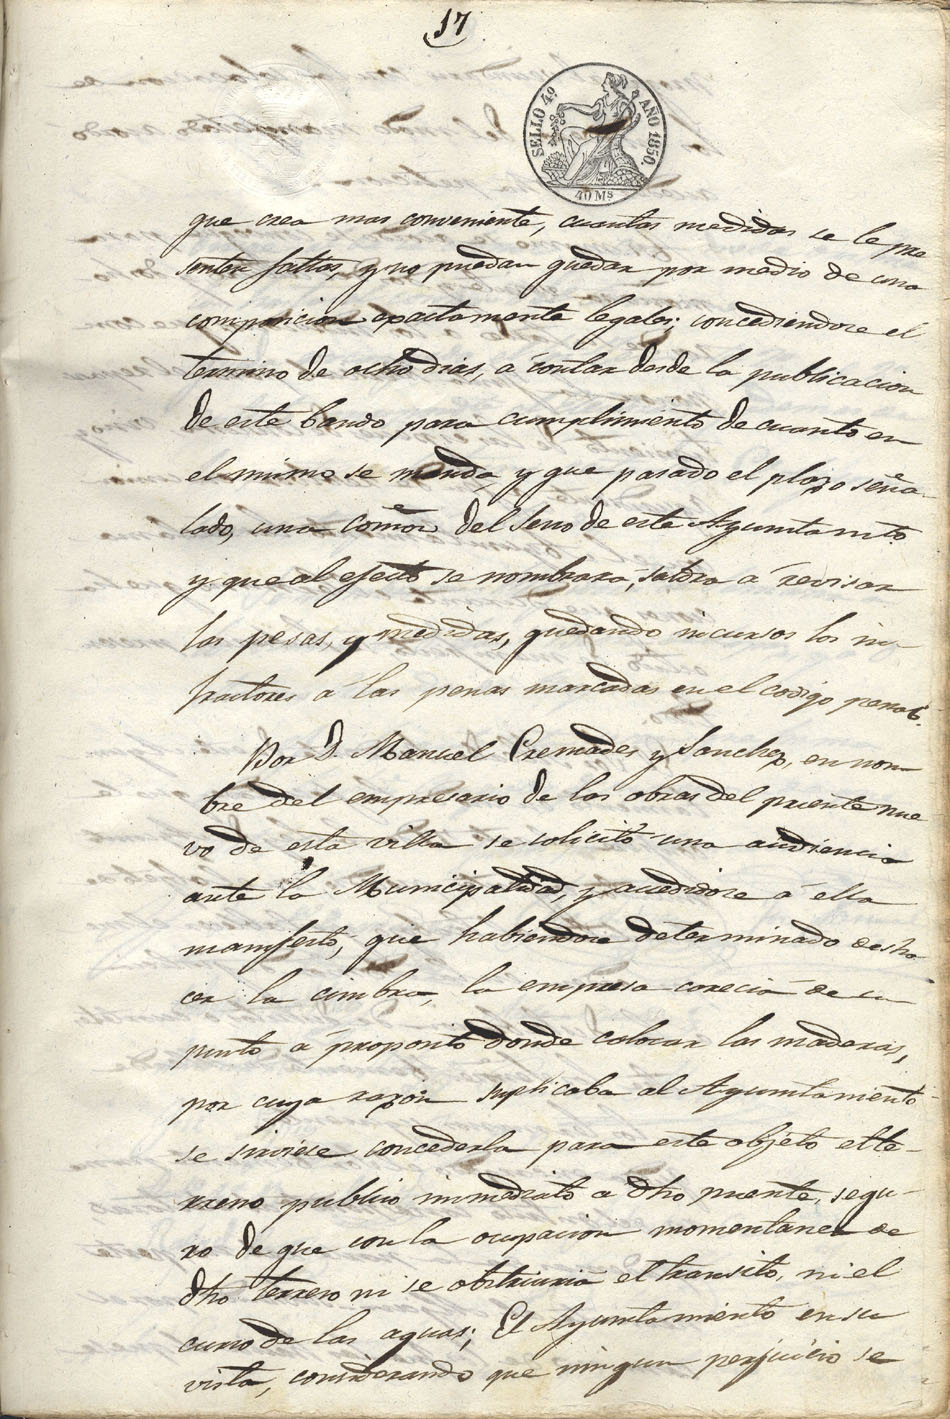 17
SELLO 4º AÑO 1850.
40 Ms
que crea mas conveniente, cuantas medidas se le pre
senten faltas, y no puedan quedar por medio de una
composicion exactamente legales; concediendose el
termino de ocho dias, á contar desde la publicacion
de este bando para cumplimiento de cuanto en
el mismo se manda y que pasado el plazo seña-
lado, una comon. del seno de este Ayuntamto.
y que al efecto se nombrará, saldra á revisar
las pesas, y medidas, quedando incursos los in-
fractores á las penas marcadas en el codigo penal.
Por D. Manuel Cremades y Sanchez, en nom-
bre del empresario de las obras del puente nue
vo de esta villa se solicitó una audiencia
ante la Municipalidad, y accediendose á ella
manifestó, que habiendose determinado desha-
cer la cimbra, la empresa carecia de un
punto á proposito donde colocar las maderas,
por cuya razon suplicaba al Ayuntamiento
se sirviese concederla para este objeto el te-
rreno publico inmediato a dho puente, segu-
ro de que con la ocupacion momentanea de
dho terreno ni se obstruiria el transito, ni el
curso de las aguas; El Ayuntamiento en su
vista, considerando que ningun perjuicio se